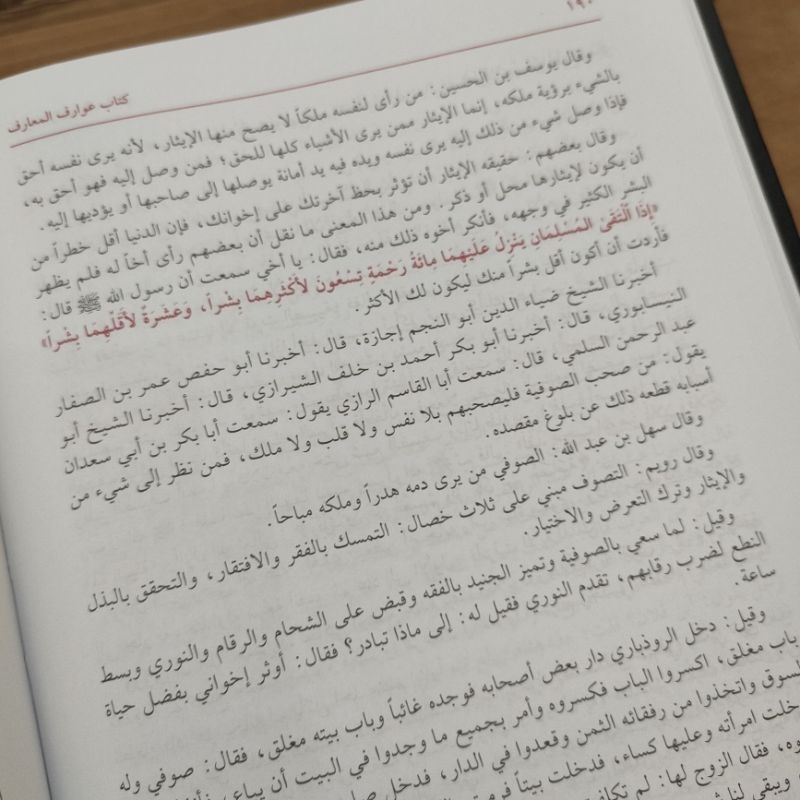 ١٩٠
كتاب عوارف المعارف
وقال يوسف بن الحسين: من رأى لنفسه ملكاً لا يصح منها الإيثار، لأنه يرى نفسه أحق
بالشيء برؤية ملكه، إنما الإيثار ممن يرى الأشياء كلها للحق؛ فمن وصل إليه فهو أحق به،
فإذا وصل شيء من ذلك إليه يرى نفسه ويده فيه يد أمانة يوصلها إلى صاحبها أو يؤديها إليه.
وقال بعضهم: حقيقه الإيثار أن تؤثر بحظ آخرتك على إخوانك، فإن الدنيا أقل خطراً من
أن يكون لإيثارها محل أو ذكر. ومن هذا المعنى ما نقل أن بعضهم رأى أخاً له فلم يظهر
البشر الكثير في وجهه، فأنكر أخوه ذلك منه، فقال: يا أخي سمعت أن رسول الله ﷺ قال:
«إِذَا الْتَقَىٰ المُسْلِمَانِ يَنْزِلُ عَلَيْهِمَا مِائَةُ رَحْمَةٍ تِسْعُونَ لأَكْثَرِهِمَا بِشْراً، وَعَشَرَةٌ لأَقَلِّهِمَا بِشْراً»
فأردت أن أكون أقل بشراً منك ليكون لك الأكثر.
أخبرنا الشيخ ضياء الدين أبو النجم إجازة، قال: أخبرنا أبو حفص عمر بن الصفار
النيسابوري، قال: أخبرنا أبو بكر أحمد بن خلف الشيرازي، قال: أخبرنا الشيخ أبو
عبد الرحمن السلمي، قال: سمعت أبا القاسم الرازي يقول: سمعت أبا بكر بن أبي سعدان
يقول: من صحب الصوفية فليصحبهم بلا نفس ولا قلب ولا ملك، فمن نظر إلى شيء من
أسبابه قطعه ذلك عن بلوغ مقصده.
وقال سهل بن عبد الله: الصوفي من يرى دمه هدراً وملكه مباحاً.
وقال رويم: التصوف مبني على ثلاث خصال: التمسك بالفقر والافتقار، والتحقق بالبذل
والإيثار وترك التعرض والاختيار.
وقيل: لما سعي بالصوفية وتميز الجنيد بالفقه وقبض على الشحام والرقام والنوري وبسط
النطع لضرب رقابهم، تقدم النوري فقيل له: إلى ماذا تبادر؟ فقال: أوثر إخواني بفضل حياة
ساعة.
وقيل: دخل الروذباري دار بعض أصحابه فوجده غائباً وباب بيته مغلق، فقال: صوفي وله
باب مغلق، اكسروا الباب فكسروه وأمر بجميع ما وجدوا في البيت أن يباع
السوق واتخذوا من رفقائه الثمن وقعدوا في الدار، فدخل
دخلت امرأته وعليها كساء، فدخلت بيتاً
فقال الزوج لها: لم
ويبقى لنا